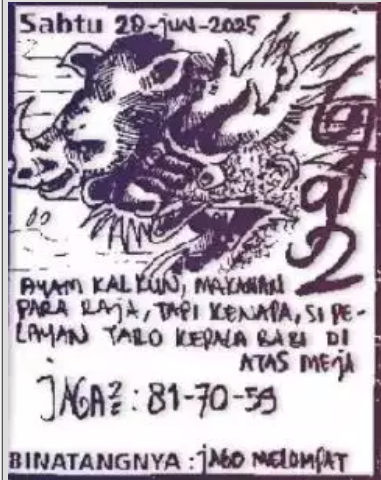 Sabtu 28-jun-2025
AYAM KALKUN, MAKANAN
PARA RAJA, TAPI KENAPA, SI PE-
LAYAN TARO KEPALA BABI DI
ATAS MEJA
JAGA²: 81-70-59
BINATANGNYA : JAGO MELOMPAT